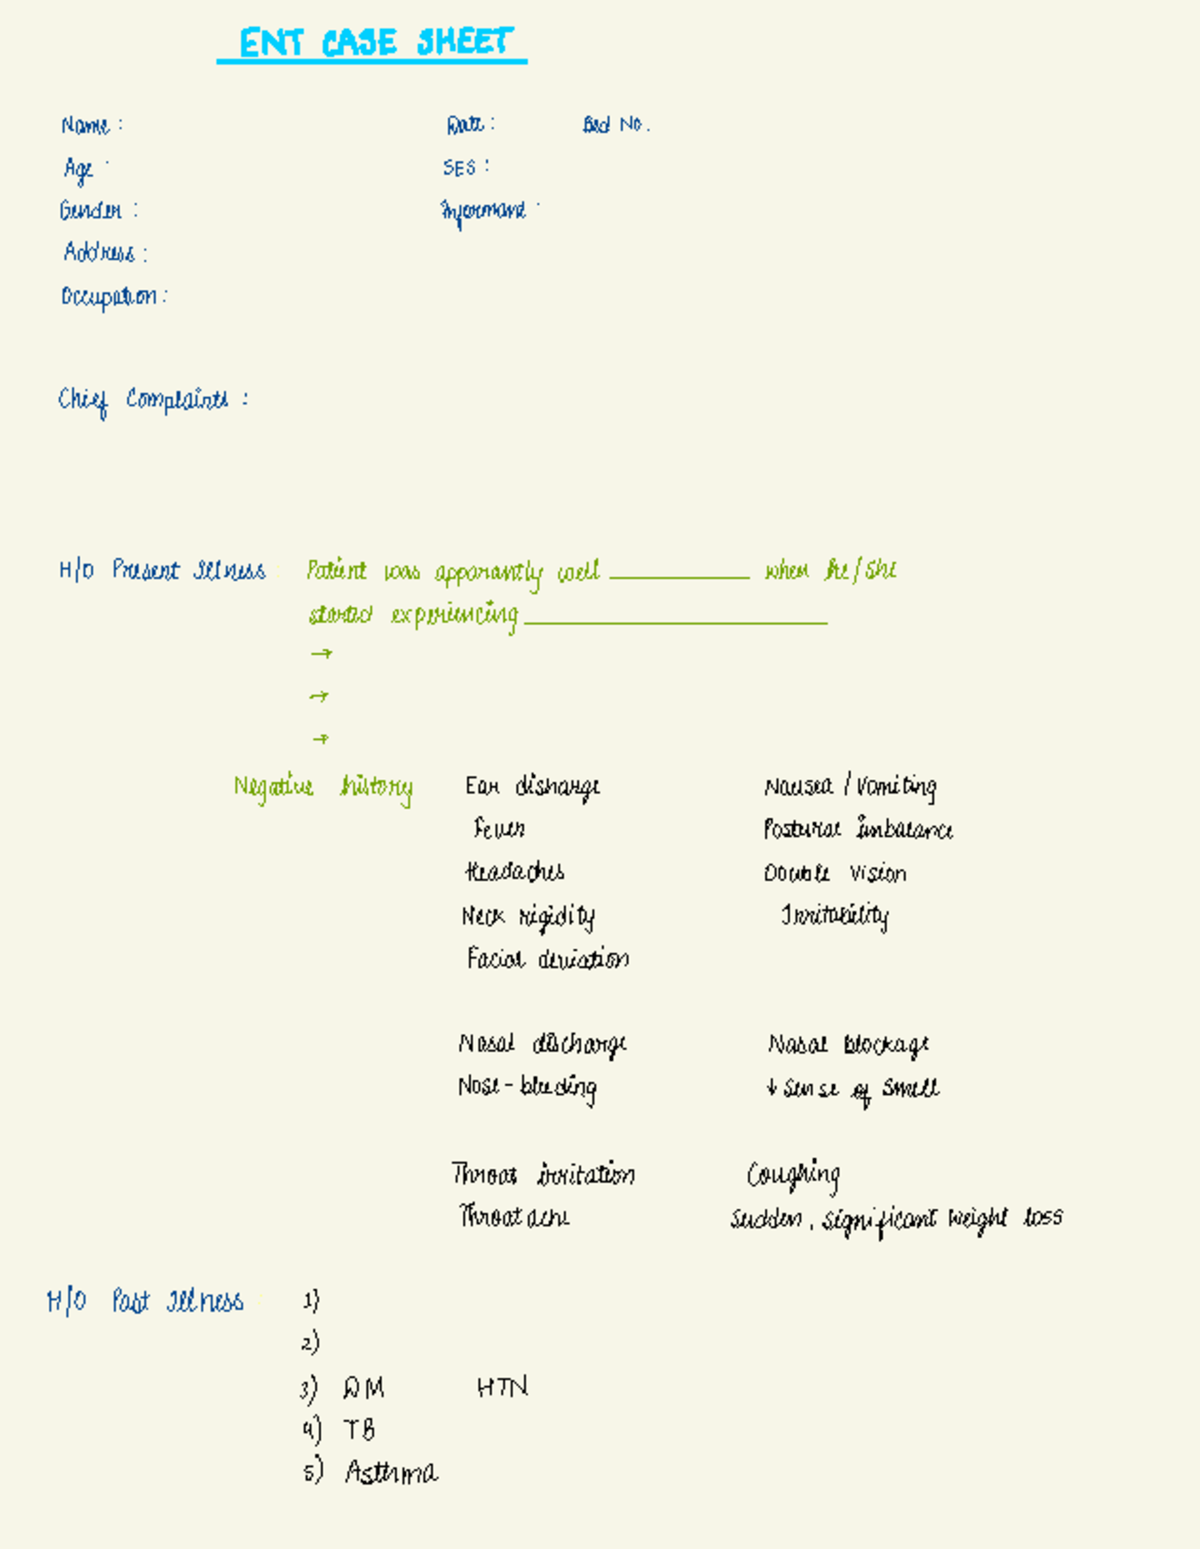 ENT CASE SHEET
Name : Date : Bed No.
Age : SES :
Gender : Informant :
Address :
Occupation :
Chief Complaints :
H/O Present Illness Patient was apparantly well __________ when he/she
started experiencing ______________________
→
→
→
Negative history Ear disharge Nausea / Vomiting
Fever Postural Imbalance
Headaches Double Vision
Neck rigidity Irritability
Facial deviation
Nasal discharge Nasal blockage
Nose-bleeding ↓ Sense of Smell
Throat irritation Coughing
Throat ache Sudden, significant Weight loss
H/O Past Illness 1)
2)
3) DM HTN
4) TB
5) Asthma